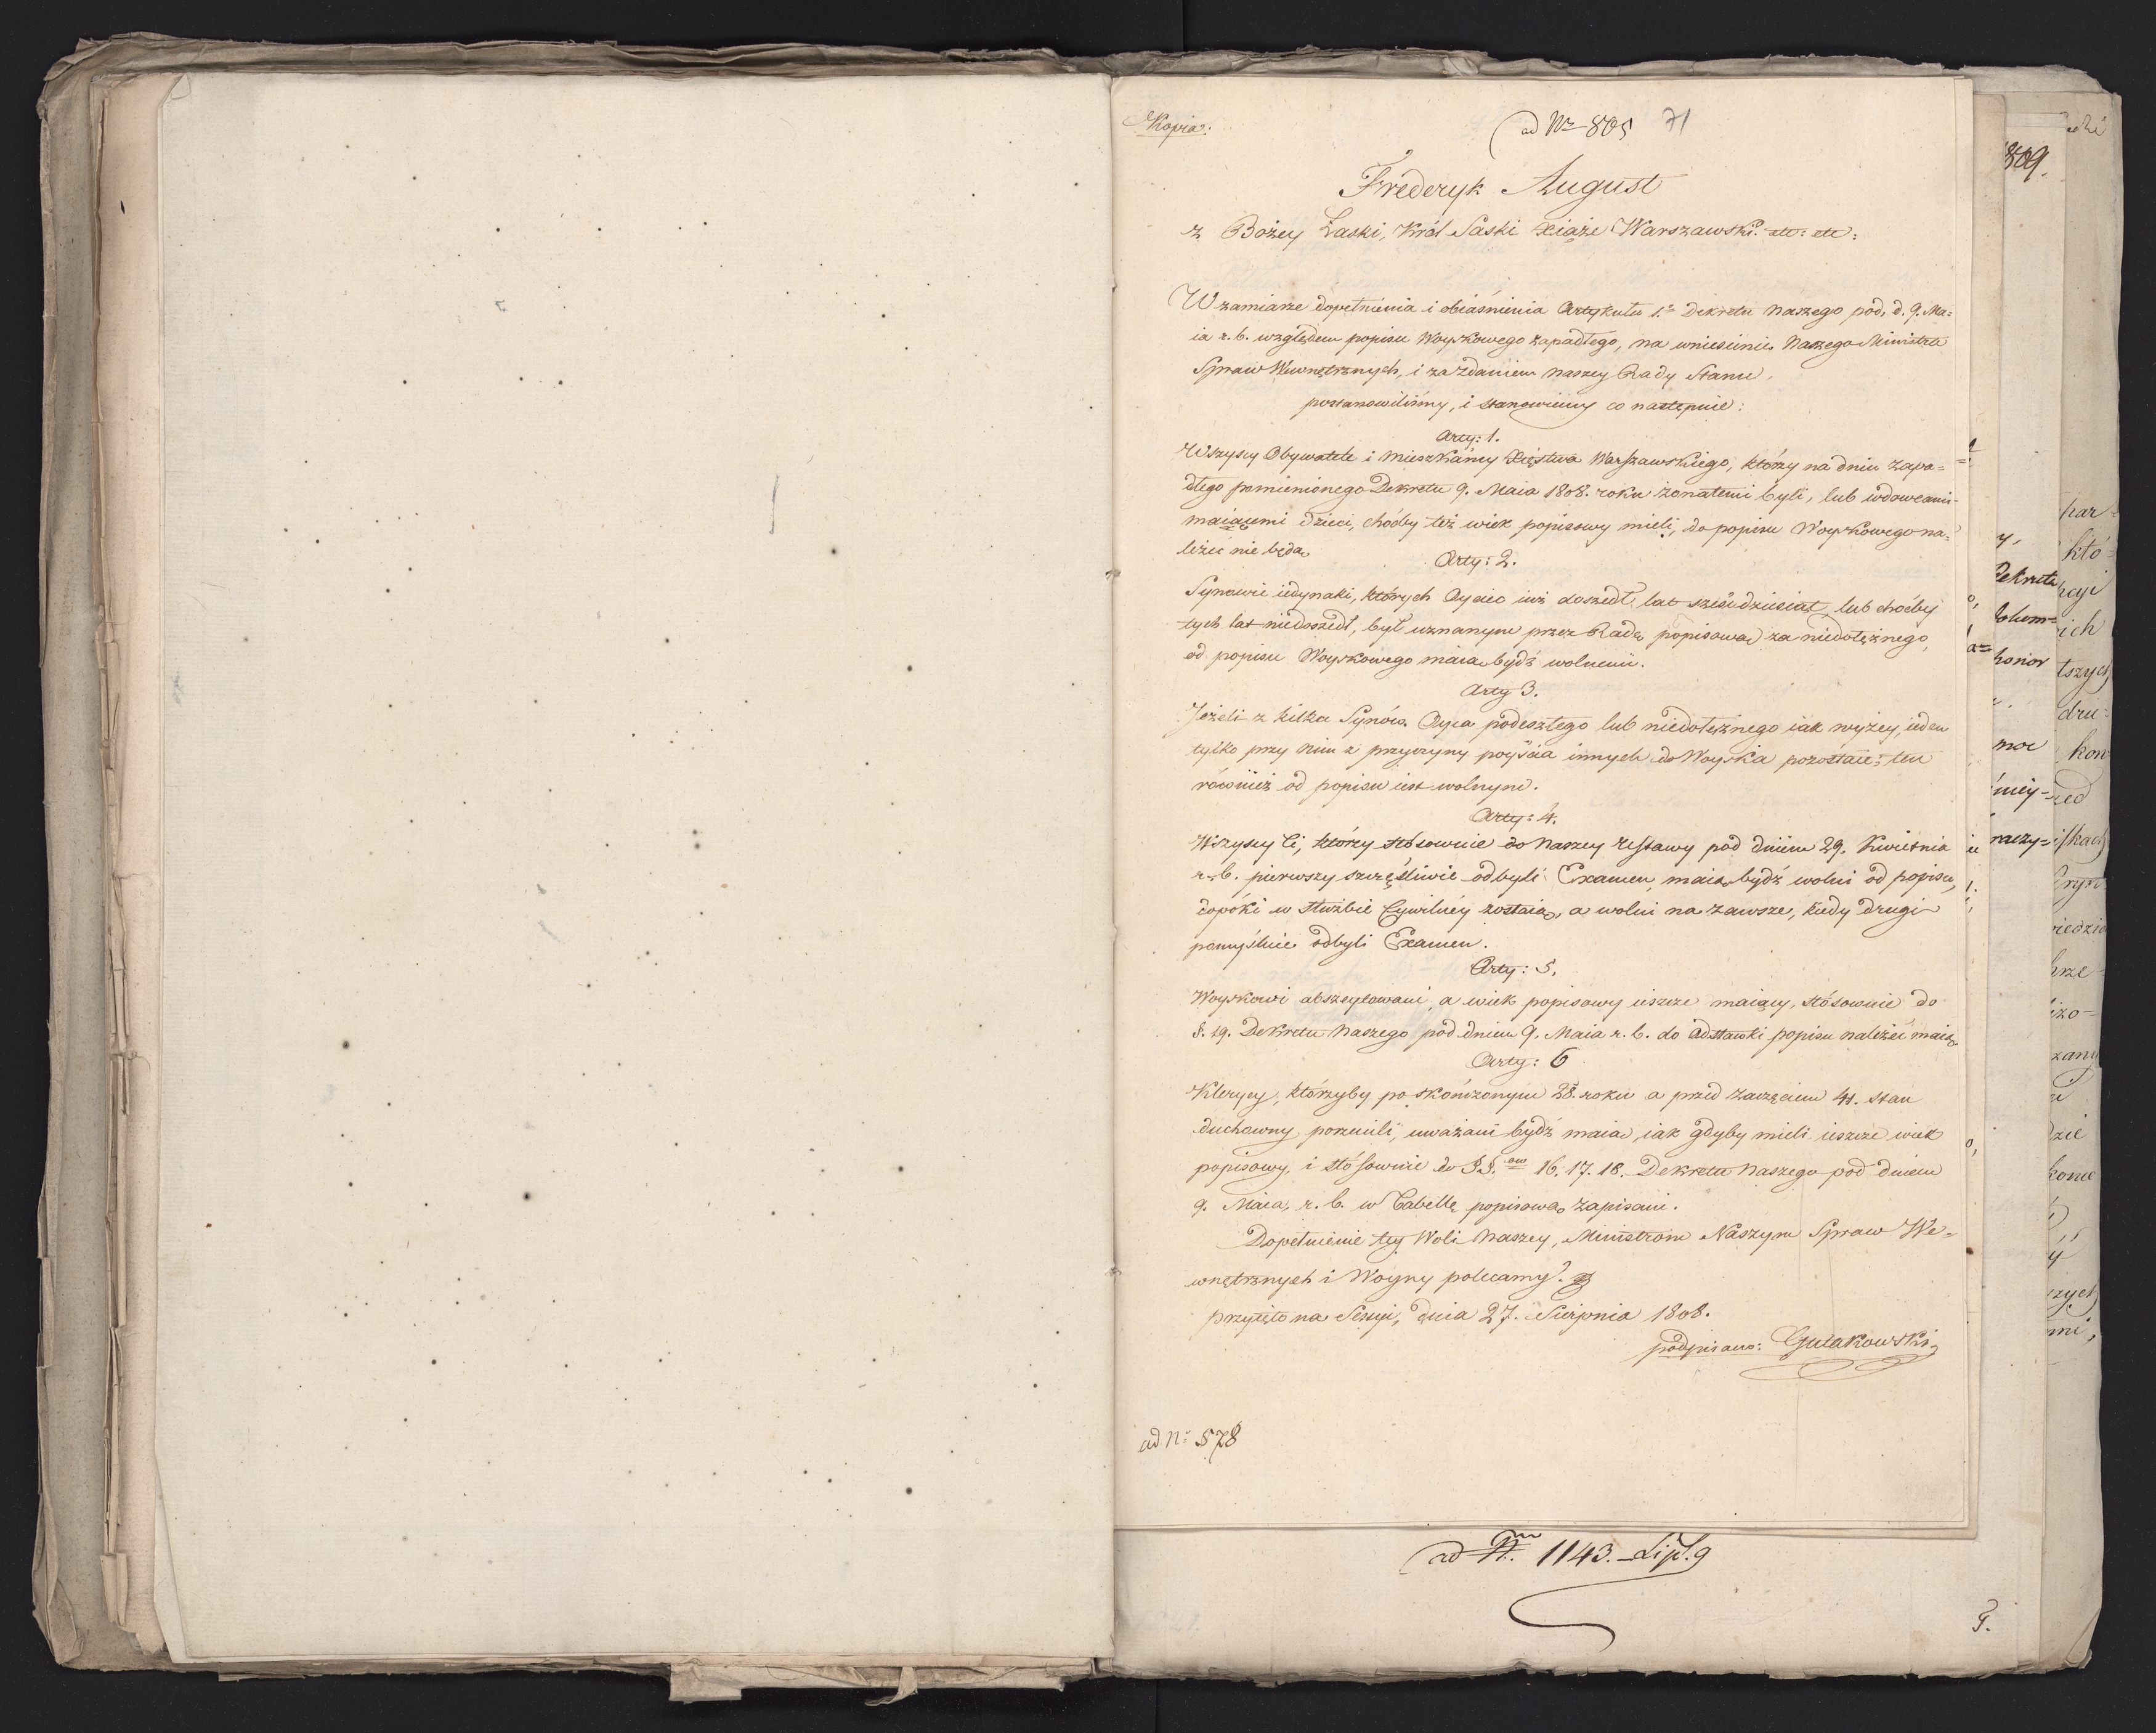 Kopia:
ad Nr 805 71
Frederyk August
z Bożey Łaski, Król Saski Xiąże Warszawski. etc: etc:
W zamiarze dopełnienia i obiaśnienia Artykułu 1.o Dekretu Naszego pod, d. 9. Ma=
ia r. b. względem popisu Woyskowego zapadłego, na wniesienie Naszego Ministra
Spraw Wewnętrznych, i za zdaniem naszey Rady Stanu,
postanowiliśmy, i stanowiemy co nastepuie:
Arty: 1.
Wszyscy Obywatele i Mieszkańcy Xięstwa Warszawskiego, którzy na dniu zapa=
dłego pomienionego Dekretu 9. Maia 1808. roku żonatemi byli, lub wdowcami
maiącemi dzieci, choćby też wiek popisowy mieli, do popisu Woyskowego na=
leżeć nie będą
Arty: 2.
Synowie iedynaki, których Oyciec iuż doszedł lat sześćdziesiąt, lub choćby
tych lat niedoszedł, był uznanym przez Radę popisową za niedołężnego,
od popisu Woyskowego maią bydź wolnemi.
Arty 3.
Jeżeli z kilku Synów Oyca podeszłego lub niedołężnego iak wyżey, ieden
tylko przy nim z przyczyny poyścia innych do Woyska pozostaie; ten
również od popisu iest wolnym.
Arty: 4.
Wszyscy Ci, którzy stósownie do Naszey Ustawy pod dniem 29. Kwietnia
r. b. pierwszy szczęśliwie odbyli Examen, maią bydź wolni od popisu,
dopóki w służbie Cywilnéy zostaią, a wolni na zawsze, kiedy drugi
pomyślnie odbyli Examen.
Arty: 5.
Woyskowi abszeytowani, a wiek popisowy ieszcze maiący, stósownie do
§. 19. Dekretu Naszego pod dniem 9. Maia r. b. do Odstawki popisu należeć maią.
Arty: 6
Klerycy, którzyby po skończonym 28. roku a przed zaczęciem 41. stan
duchowny porzucili, uważani bydź maią, iak gdyby mieli ieszcze wiek
popisowy, i stósownie do §§. ow 16. 17. 18. Dekretu Naszego pod dniem
9. Maia, r. b. w Tabellę popisową zapisani.
Dopełnienie tey Woli Naszey, Ministrom Naszym Spraw We=
wnętrznych i Woyny polecamy.
przyięto na Sessyi, dnia 27. Sierpnia 1808.
podpisano: Gutakowski
ad No 578
ad Nm 1143. Lipl. 9